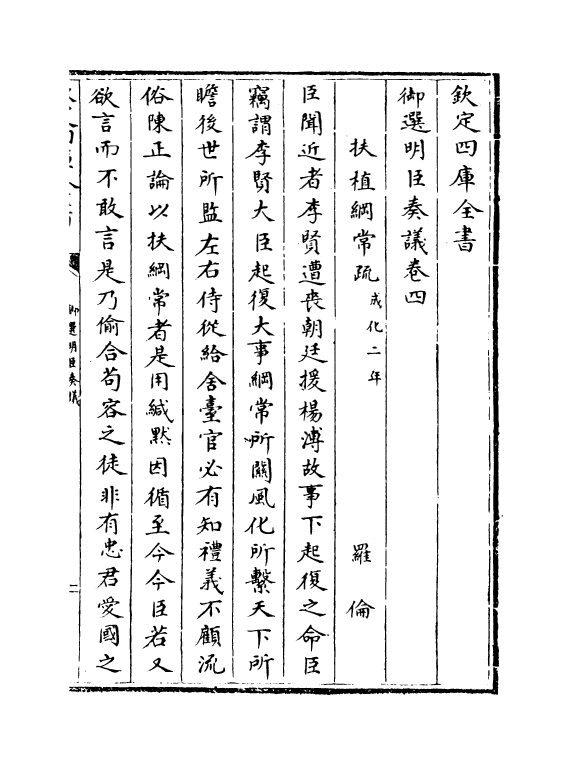 欽定四庫全書
御選明臣奏議卷四
扶植綱常疏 成化二年 羅倫
臣聞近者李賢遭喪朝廷援楊溥故事下起復之命臣
竊謂李賢大臣起復大事綱常所關風化所繫天下所
瞻後世所監左右侍從給舍臺官必有知禮義不顧流
俗陳正論以扶綱常者是用緘默因循至今今臣若又
欲言而不敢言是乃偷合苟容之徒非有忠君愛國之
御選明臣奏議